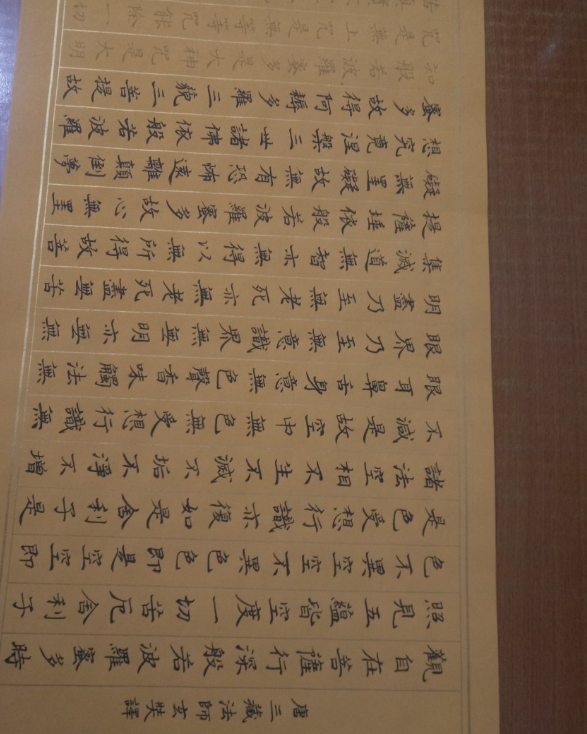 唐三藏法師玄奘譯
觀自在菩薩行深般若波羅蜜多時
照見五蘊皆空度一切苦厄舍利子
色不異空空不異色色即是空空即
是色受想行識亦復如是舍利子是
諸法空相不生不滅不垢不淨不增
不減是故空中無色無受想行識無
眼耳鼻舌身意無色聲香味觸法無
眼界乃至無意識界無無明亦無無
明盡乃至無老死亦無老死盡無苦
集滅道無智亦無得以無所得故菩
提薩埵依般若波羅蜜多故心無罣
礙無罣礙故無有恐怖遠離顛倒夢
想究竟涅槃三世諸佛依般若波羅
蜜多故得阿耨多羅三藐三菩提故
知般若波羅蜜多是大神咒是大明
咒是無上咒是無等等咒能除一切